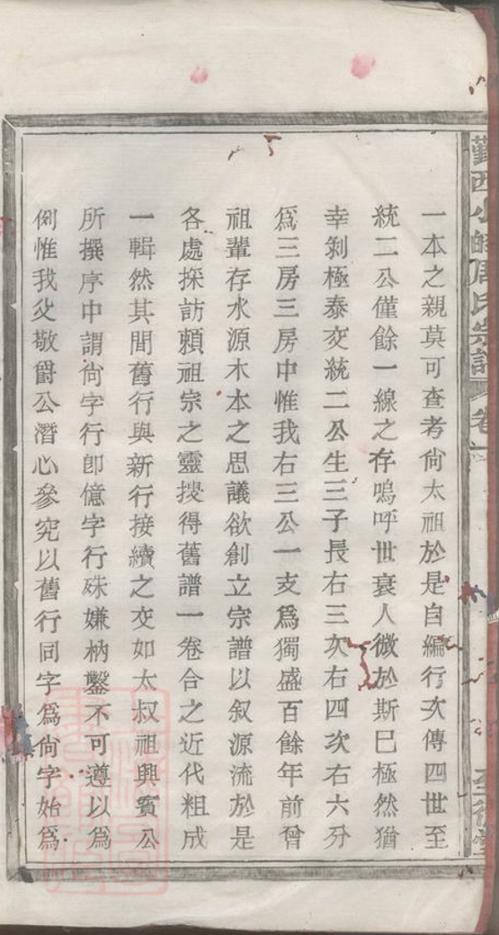 鄞西小皎周氏宗譜 卷
一本之親莫可查考尙太祖於是自編行次傳四世至
統二公僅餘一線之存嗚呼世衰人微於斯巳極然猶
幸剝極泰交統二公生三子長右三次右四次右六分
爲三房三房中惟我右三公一支爲獨盛百餘年前曾
祖輩存水源木本之思議欲創立宗譜以叙源流於是
各處採訪賴祖宗之靈搜得舊譜一卷合之近代粗成
一輯然其間舊行與新行接續之交如太叔祖興賓公
所撰序中謂尙字行卽億字行殊嫌枘鑿不可遵以爲
例惟我父敬爵公潛心參究以舊行同字爲尙字始爲